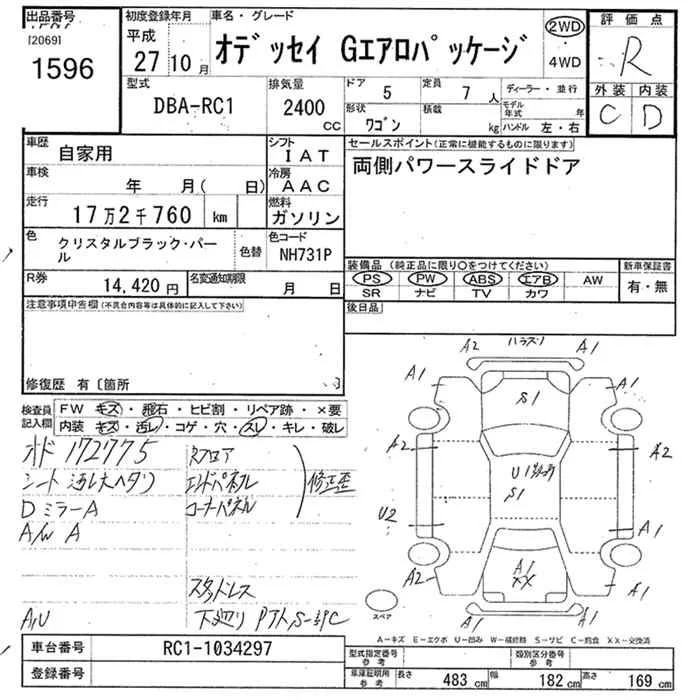 出品番号
[2069]
1596
初度登録年月
平成
27 10 月
車名・グレード
オデッセイ Gエアロパッケージ
2WD
・
4WD
評価点
R
外装 内装
C D
型式
DBA-RC1
排気量
2400
CC
ドア
5
定員
7 人
形状
ワゴン
積載
kg
ディーラー・並行
モデル年式 年
ハンドル 左・右
車歴
自家用
シフト
IAT
車検
年 月( 日)
冷房
AAC
走行
17万2千760 km
燃料
ガソリン
色
クリスタルブラック・パール
色替
色コード
NH731P
R券
14,420 円
名変通知期限
月 日
セールスポイント(正常に機能するものに限ります)
両側パワースライドドア
装備品(純正品に限り○をつけてください)
PS PW ABS エアB AW
SR ナビ TV カワ
新車保証書
有・無
後日品
注意事項申告欄(不具合内容等は具体的に記入して下さい)
修復歴 有〔箇所 〕
検査員記入欄
FW キズ・飛石・ヒビ割・リペア跡・×要
内装 キズ・汚レ・コゲ・穴・スレ・キレ・破レ
オド 172775
シート汚レ大ヘタリ
Dミラー A
A/W A
A/U
Rフロア
エンドパネル
コーナーパネル
修正歪
スタッドレス
A2 A1
A1 S1 A1
A2 U1 S1 A2
U2 A1
A2 A1 XX A1
A1
スペア
A-キズ E-エクボ U-凹ミ W-補修跡 S-サビ C-腐食 XX-交換済
車台番号
RC1-1034297
登録番号
型式指定番号
参考
類別区分番号
参考
車庫証明用
参考
長さ 483 cm 幅 182 cm 高さ 169 cm